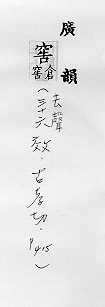 廣韻
窖
倉窖
(去聲三十六效．古孝切．P415)